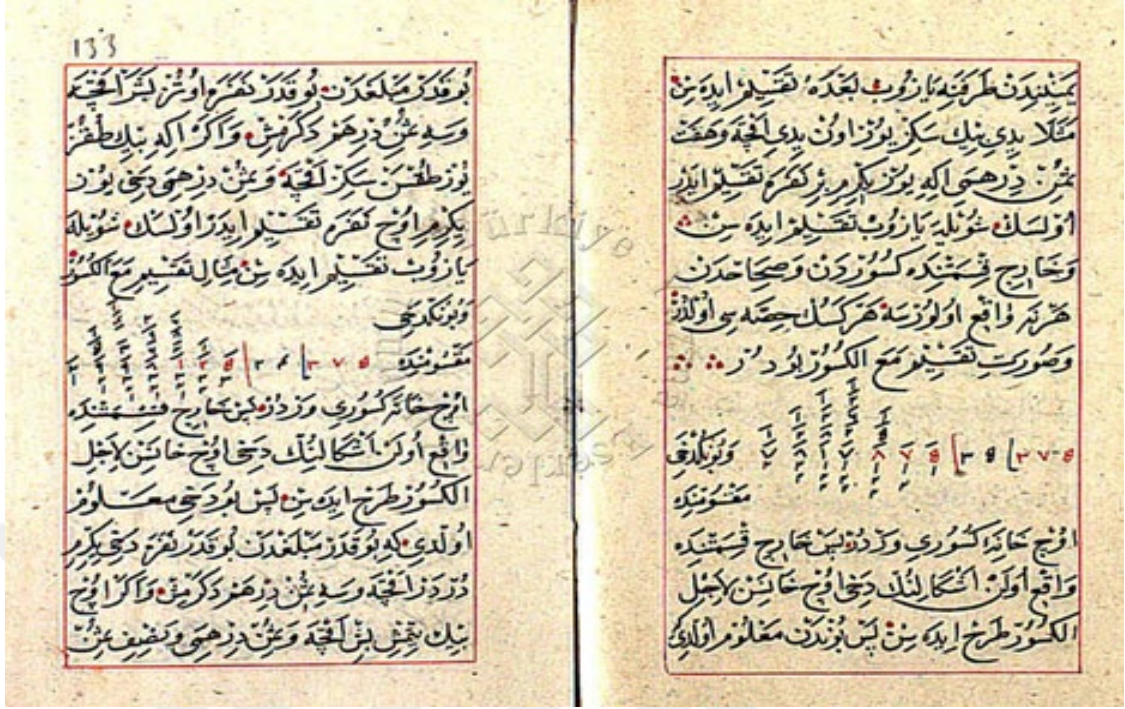 یمیندن طرفنه یازوب بعده تقسیم ایده سن
مثلا یدی بیك سكز یوز اون یدی اقچه و هفت
ثمن درهمی اكه یوز یكرم بر نفره تقسیم ایدر
اولسك شویله یازوب تقسیم ایده سن
و خارج قسمتنده كسوردن و صحاحدن
هر نه واقع اولورسه هر كسك حصه سی اولدر
و صورت تقسیم مع الكسور بودر
و بونكدخی
مقسومنده
اوچ خانه كسوری وردر پس خارج قسمتنده
واقع اولن اشكالنك دخی اوچ خانسن لاجل
الكسور طرح ایده سن پس بوندن معلوم اولدی
133
بو قدر مبلغدن بو قدر نفره اوتز بشر اقچه
و سه ثمن درهم دكرمش و اكر اكه بیك طقز
یوز طقسن سكز اقچه و ثمن درهمی دخی یوز
یكرم اوچ نفره تقسیم ایدر اولسك شویله
یازوب تقسیم ایده سن مثال تقسیم مع الكسور
و بونكدخی
مقسومنده
اوچ خانه كسوری وردر پس خارج قسمتنده
واقع اولن اشكالنك دخی اوچ خانسن لاجل
الكسور طرح ایده سن پس بو دخی معلوم
اولدی كه بو قدر مبلغدن بو قدر نفره دخی یكرم
دردر اقچه و سه ثمن درهم دكرمش و اكر اوچ
بیك یتمش بش اقچه و ثمن درهمی و نصف ثمن